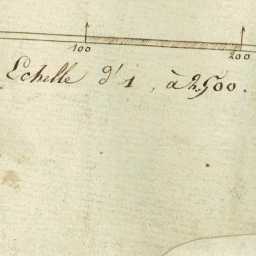 100 200
Echelle d'1, à 2.500.